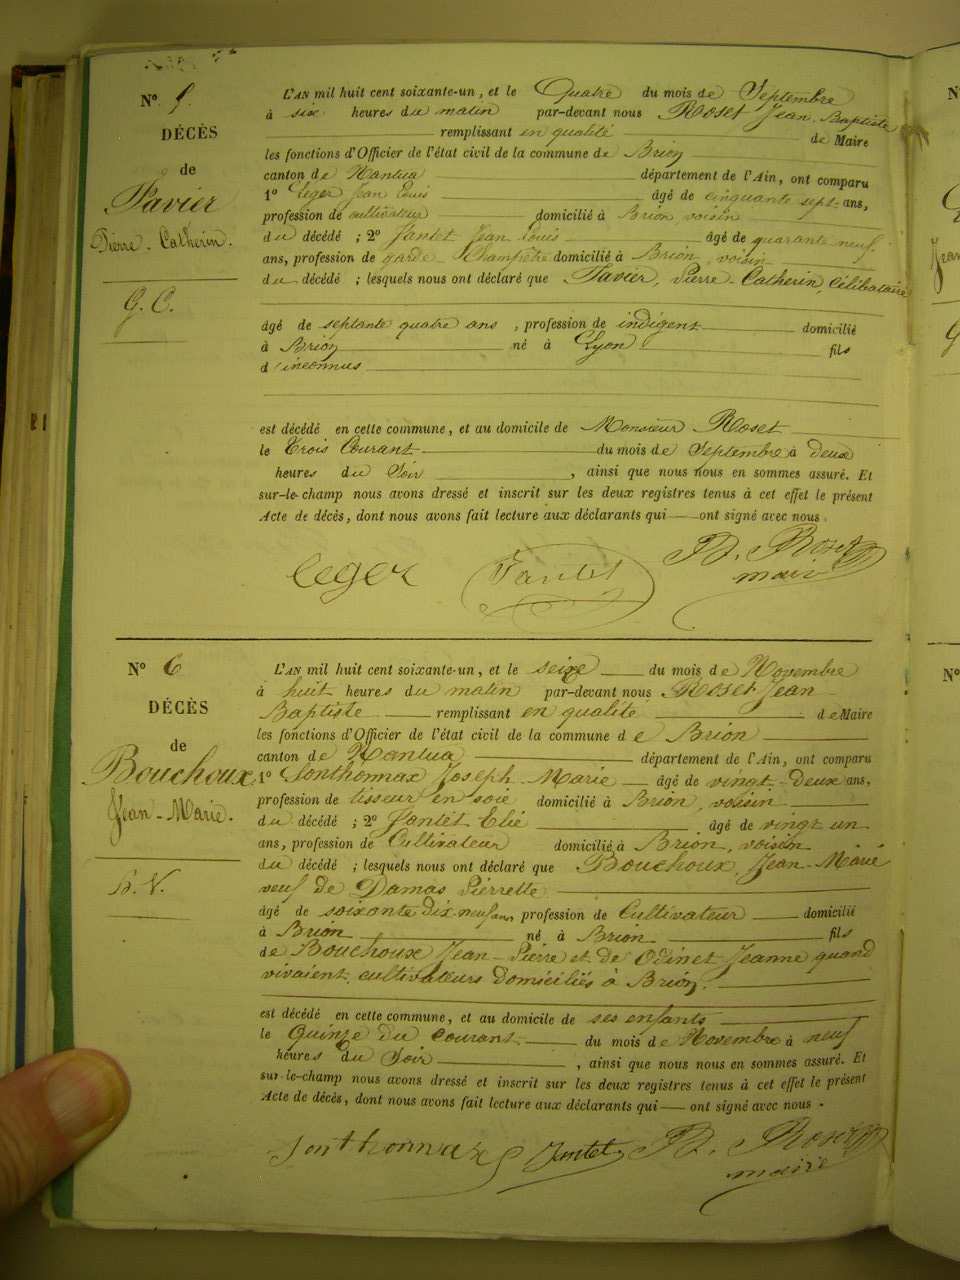 N° 5.
DÉCÈS
de
Favier
Pierre-Catherin.
G. C.
L'AN mil huit cent soixante-un, et le Quatre du mois de Septembre
à six heures du matin par-devant nous Roset Jean Baptiste
remplissant en qualité de Maire
les fonctions d'Officier de l'état civil de la commune de Brion
canton de Nantua département de l'Ain, ont comparu
1° Leger Jean Louis âgé de cinquante sept ans,
profession de cultivateur domicilié à Brion voisin
du décédé ; 2° Jantet Jean Louis âgé de quarante neuf
ans, profession de garde-Champêtre domicilié à Brion, voisin
du décédé ; lesquels nous ont déclaré que Favier, Pierre-Catherin, Célibataire
âgé de septante quatre ans, profession de indigent domicilié
à Brion né à Lyon fils
d'inconnus
est décédé en cette commune, et au domicile de Monsieur Roset
le Trois Courant du mois de Septembre à deux
heures du Soir, ainsi que nous nous en sommes assuré. Et
sur-le-champ nous avons dressé et inscrit sur les deux registres tenus à cet effet le présent
Acte de décès, dont nous avons fait lecture aux déclarants qui — ont signé avec nous.
Leger Jantet B. Roset
maire
N° 6
DÉCÈS
de
Bouchoux
Jean-Marie.
L'AN mil huit cent soixante-un, et le seize du mois de Novembre
à huit heures du matin par-devant nous Roset Jean
Baptiste remplissant en qualité de Maire
les fonctions d'Officier de l'état civil de la commune de Brion
canton de Nantua département de l'Ain, ont comparu
1° Sonthonnax Joseph-Marie âgé de vingt-deux ans,
profession de tisseur en soie domicilié à Brion, voisin
du décédé ; 2° Jantet Elie âgé de vingt un
ans, profession de Cultivateur domicilié à Brion, voisin
du décédé ; lesquels nous ont déclaré que Bouchoux, Jean-Marie
veuf de Damas Pierrette
âgé de soixante dix neuf ans, profession de Cultivateur domicilié
à Brion né à Brion fils
de Bouchoux Jean-Pierre et de Odinet Jeanne quand
vivaient, cultivateurs domiciliés à Brion.
est décédé en cette commune, et au domicile de ses enfants
le Quinze du courant du mois de Novembre à neuf
heures du Soir, ainsi que nous nous en sommes assuré. Et
sur-le-champ nous avons dressé et inscrit sur les deux registres tenus à cet effet le présent
Acte de décès, dont nous avons fait lecture aux déclarants qui — ont signé avec nous.
Sonthonnax Jantet B. Roset
maire